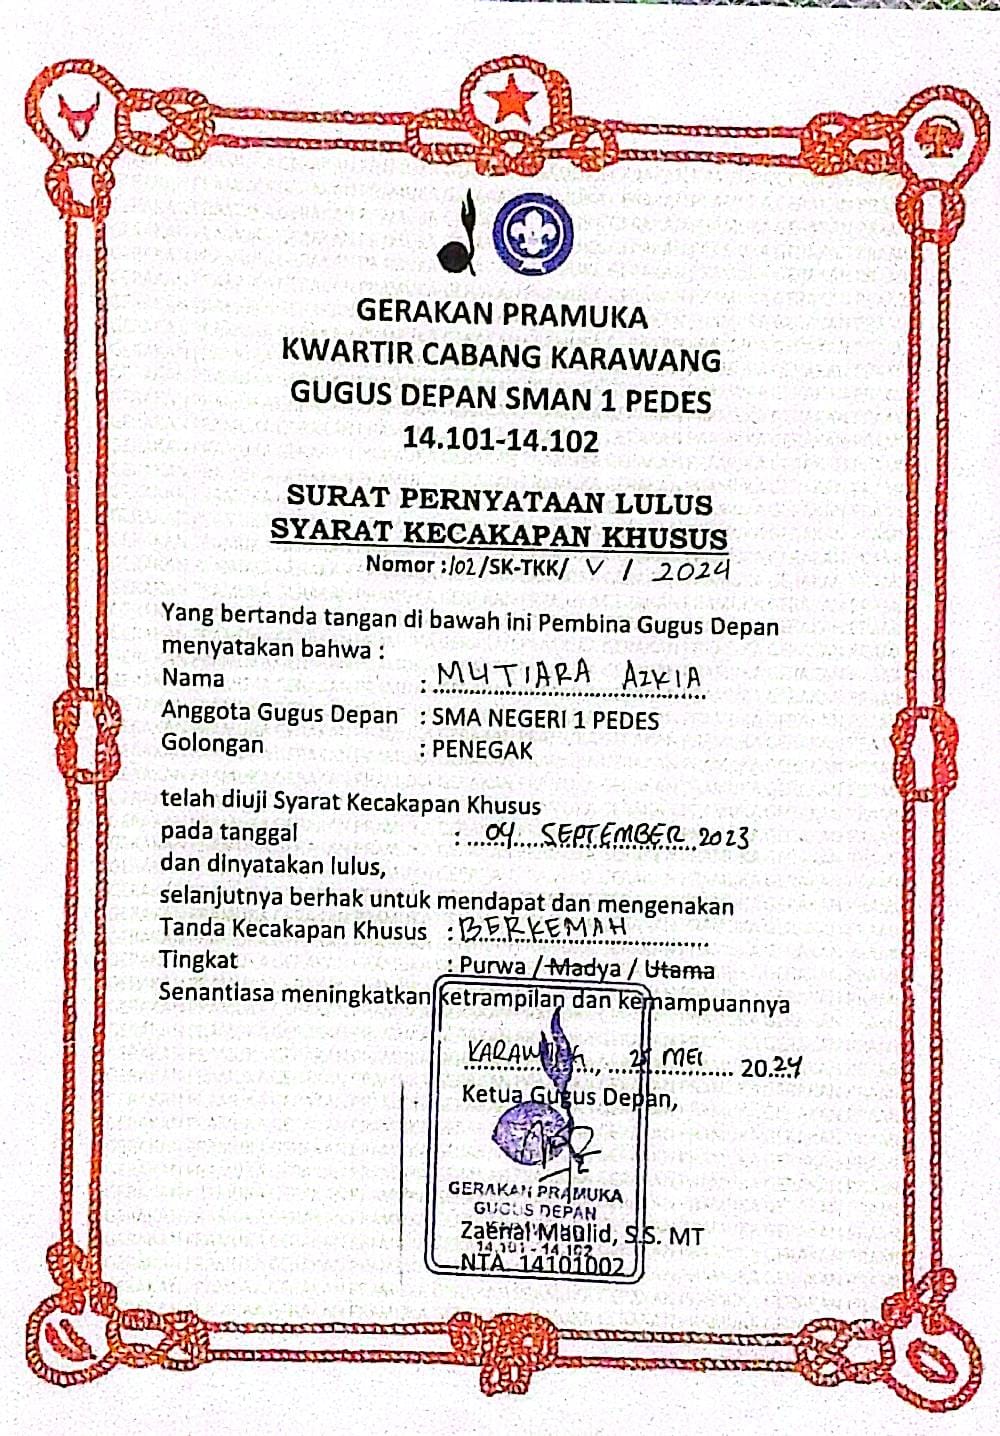 GERAKAN PRAMUKA
KWARTIR CABANG KARAWANG
GUGUS DEPAN SMAN 1 PEDES
14.101-14.102
SURAT PERNYATAAN LULUS
SYARAT KECAKAPAN KHUSUS
Nomor :102/SK-TKK/ V / 2024
Yang bertanda tangan di bawah ini Pembina Gugus Depan
menyatakan bahwa :
Nama : MUTIARA AZKIA
Anggota Gugus Depan : SMA NEGERI 1 PEDES
Golongan : PENEGAK
telah diuji Syarat Kecakapan Khusus
pada tanggal : 04 SEPTEMBER 2023
dan dinyatakan lulus,
selanjutnya berhak untuk mendapat dan mengenakan
Tanda Kecakapan Khusus : BERKEMAH
Tingkat : Purwa / Madya / Utama
Senantiasa meningkatkan ketrampilan dan kemampuannya
KARAWANG, MEI 2024
Ketua Gugus Depan,
GERAKAN PRAMUKA
GUGUS DEPAN
Zaenal Maulid, S.S. MT
14.101 - 14.102
NTA 14101002